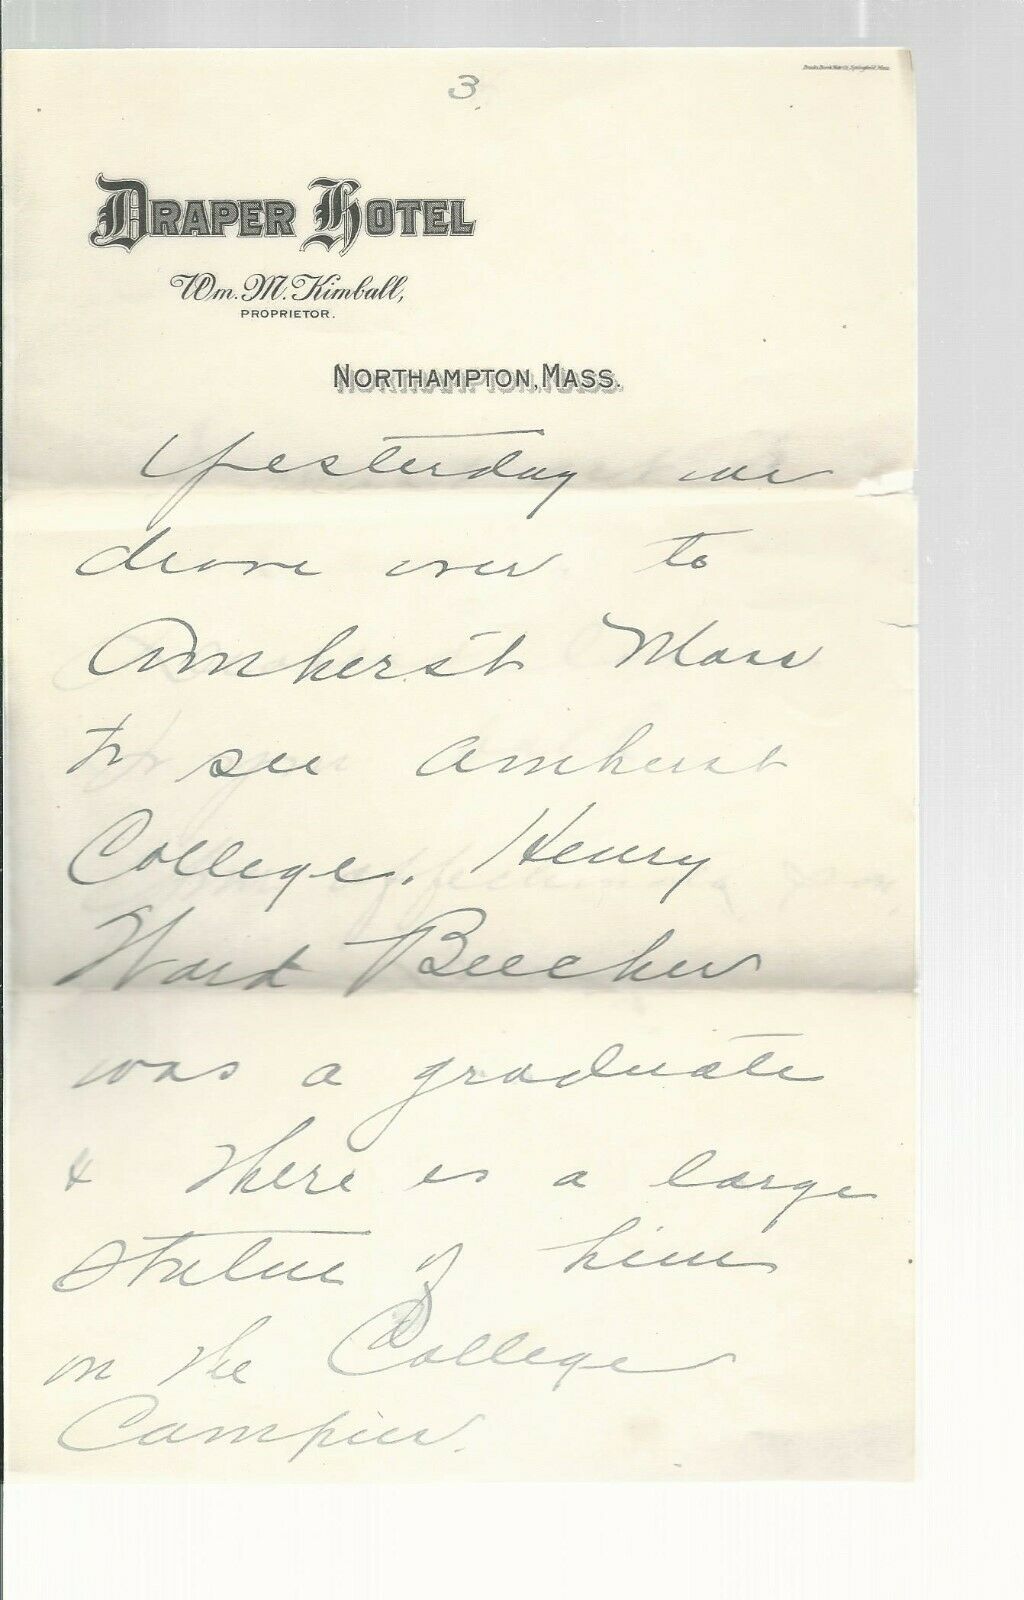 3.
DRAPER HOTEL
Wm. M. Kimball,
PROPRIETOR.
NORTHAMPTON, MASS.
Yesterday we
drove over to
Amherst Mass
to see Amherst
College. Henry
Ward Beecher
was a graduate
& there is a large
statue of him
on the College
Campus.